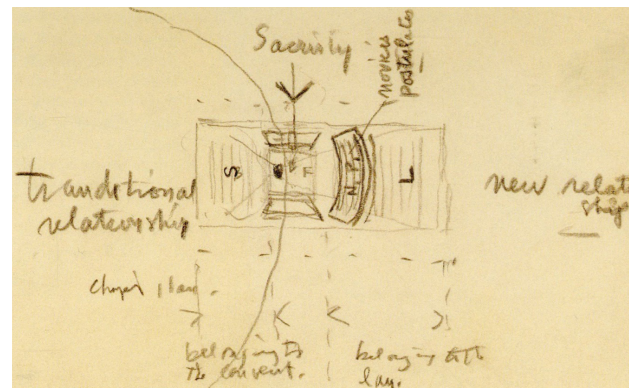 Sacristy
novices
postulates
S
F
N.P.
L
tranditional
relationship
new relat
ship
chapel plan.
belonging to
the convent.
belonging to the
lay.